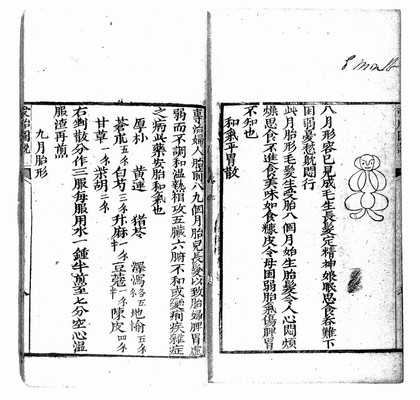 8 month
八月形容已見成毛生長髮定精神娘眠思食吞難下
困弱憂愁就悶行
此月胎形毛髮生受胎八個月始生胎髮令人心悶煩
燥思食不進食美味如食糠皮令母困弱胎氣傷脾胃
不知也
和氣平胃散
專治婦人胎前八九個月胎兒長髮以致胎婦脾胃虛
弱而不調和溫熱相攻五臟六腑不和或變痢疾雜症
之病此藥安胎和氣也
厚朴 黃連 猪苓 澤瀉各五分 地榆五分
蒼朮五分 白芍三分 升麻半 豆蔻一分 陳皮四分
甘草一分 柴胡二分
右剉散分作三服每服用水一鍾半煎至七分空心溫
服渣再煎
九月胎形